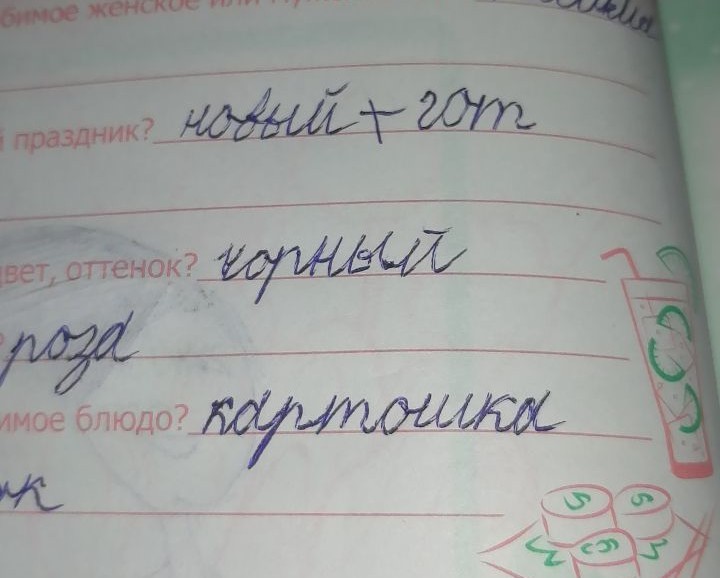 бимое женское или
праздник? новый + гот
цвет, оттенок? чорный
роза
имое блюдо? картошка